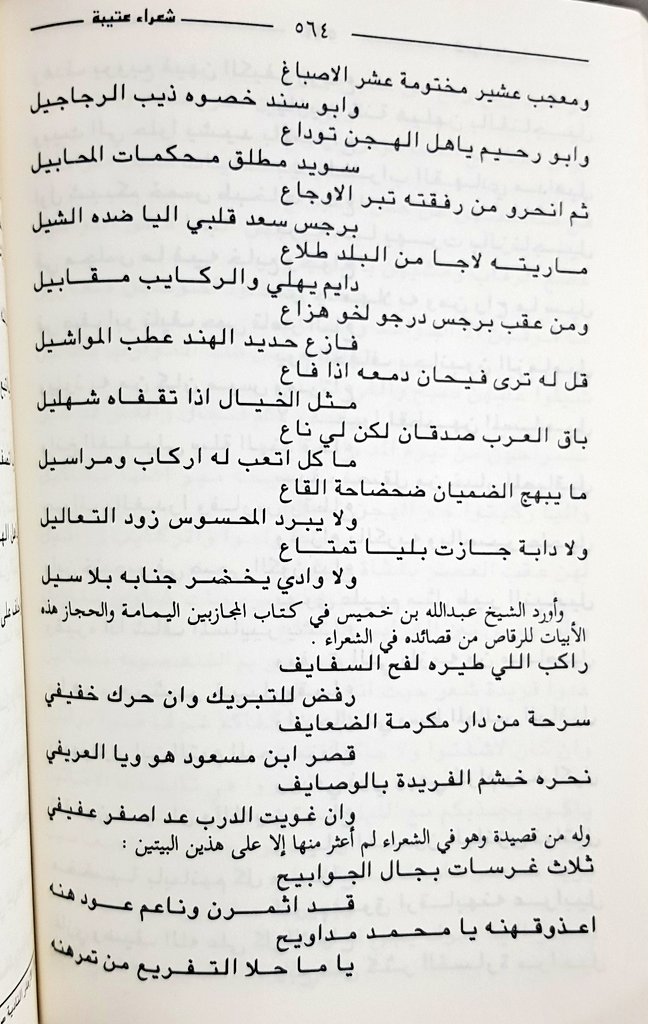 شعراء عتيبة
٥٦٤
ومعجب عشير مختومة عشر الاصباغ
وابو سند خصوه ذيب الرجاجيل
وابو رحيم ياهل الهجن توداع
سويد مطلق محكمات المحابيل
ثم انحرو من رفقته تبر الاوجاع
برجس سعد قلبي اليا ضده الشيل
ماريته لاجا من البلد طلاع
دايم يهلي والركايب مقابيل
ومن عقب برجس درجو لخو هزاع
فازع حديد الهند عطب المواشيل
قل له ترى فيحان دمعه اذا فاع
مثل الخيال اذا تقفاه شهليل
باق العرب صدقان لكن لي ناع
ما كل اتعب له اركاب ومراسيل
ما يبهج الضميان ضحضاحة القاع
ولا يبرد المحسوس زود التعاليل
ولا دابة جازت بليا تمتاع
ولا وادي يخضر جنابه بلا سيل
وأورد الشيخ عبدالله بن خميس في كتاب المجاز بين اليمامة والحجاز هذه
الأبيات للرقاص من قصائده في الشعراء :
راكب اللي طيره لفح السفايف
رفض للتبريك وان حرك خفيفي
سرحة من دار مكرمة الضعايف
قصر ابن مسعود هو ويا العريفي
نحره خشم الفريدة بالوصايف
وان غويت الدرب عد اصفر عفيفي
وله من قصيدة وهو في الشعراء لم أعثر منها إلا على هذين البيتين :
ثلاث غرسات بجال الجوابيح
قد اثمرن وناعم عودهنه
اعذوقهنه يا محمد مداويح
يا ما حلا التفريع من تمرهنه